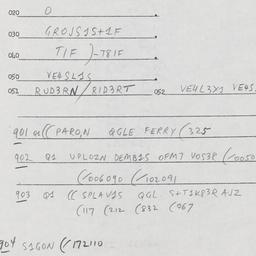 020 O
030 GROJS1S+1F
040 TIF )-T8IF
050 VE4SL1S
051 RUD3RN/RID3RT 052 VE4L3Y1 VE4S
901 (( PARO,N QGLE FERRY (325
902 Q1 UPLOZN DEMB1S OFM7 VOS3P (/0050
(/006090 (/102091
903 Q1 (( SPLAV1S QGL S+T1K83R AJZ
(117 (212 (832 (067
904 S1GON (/172110